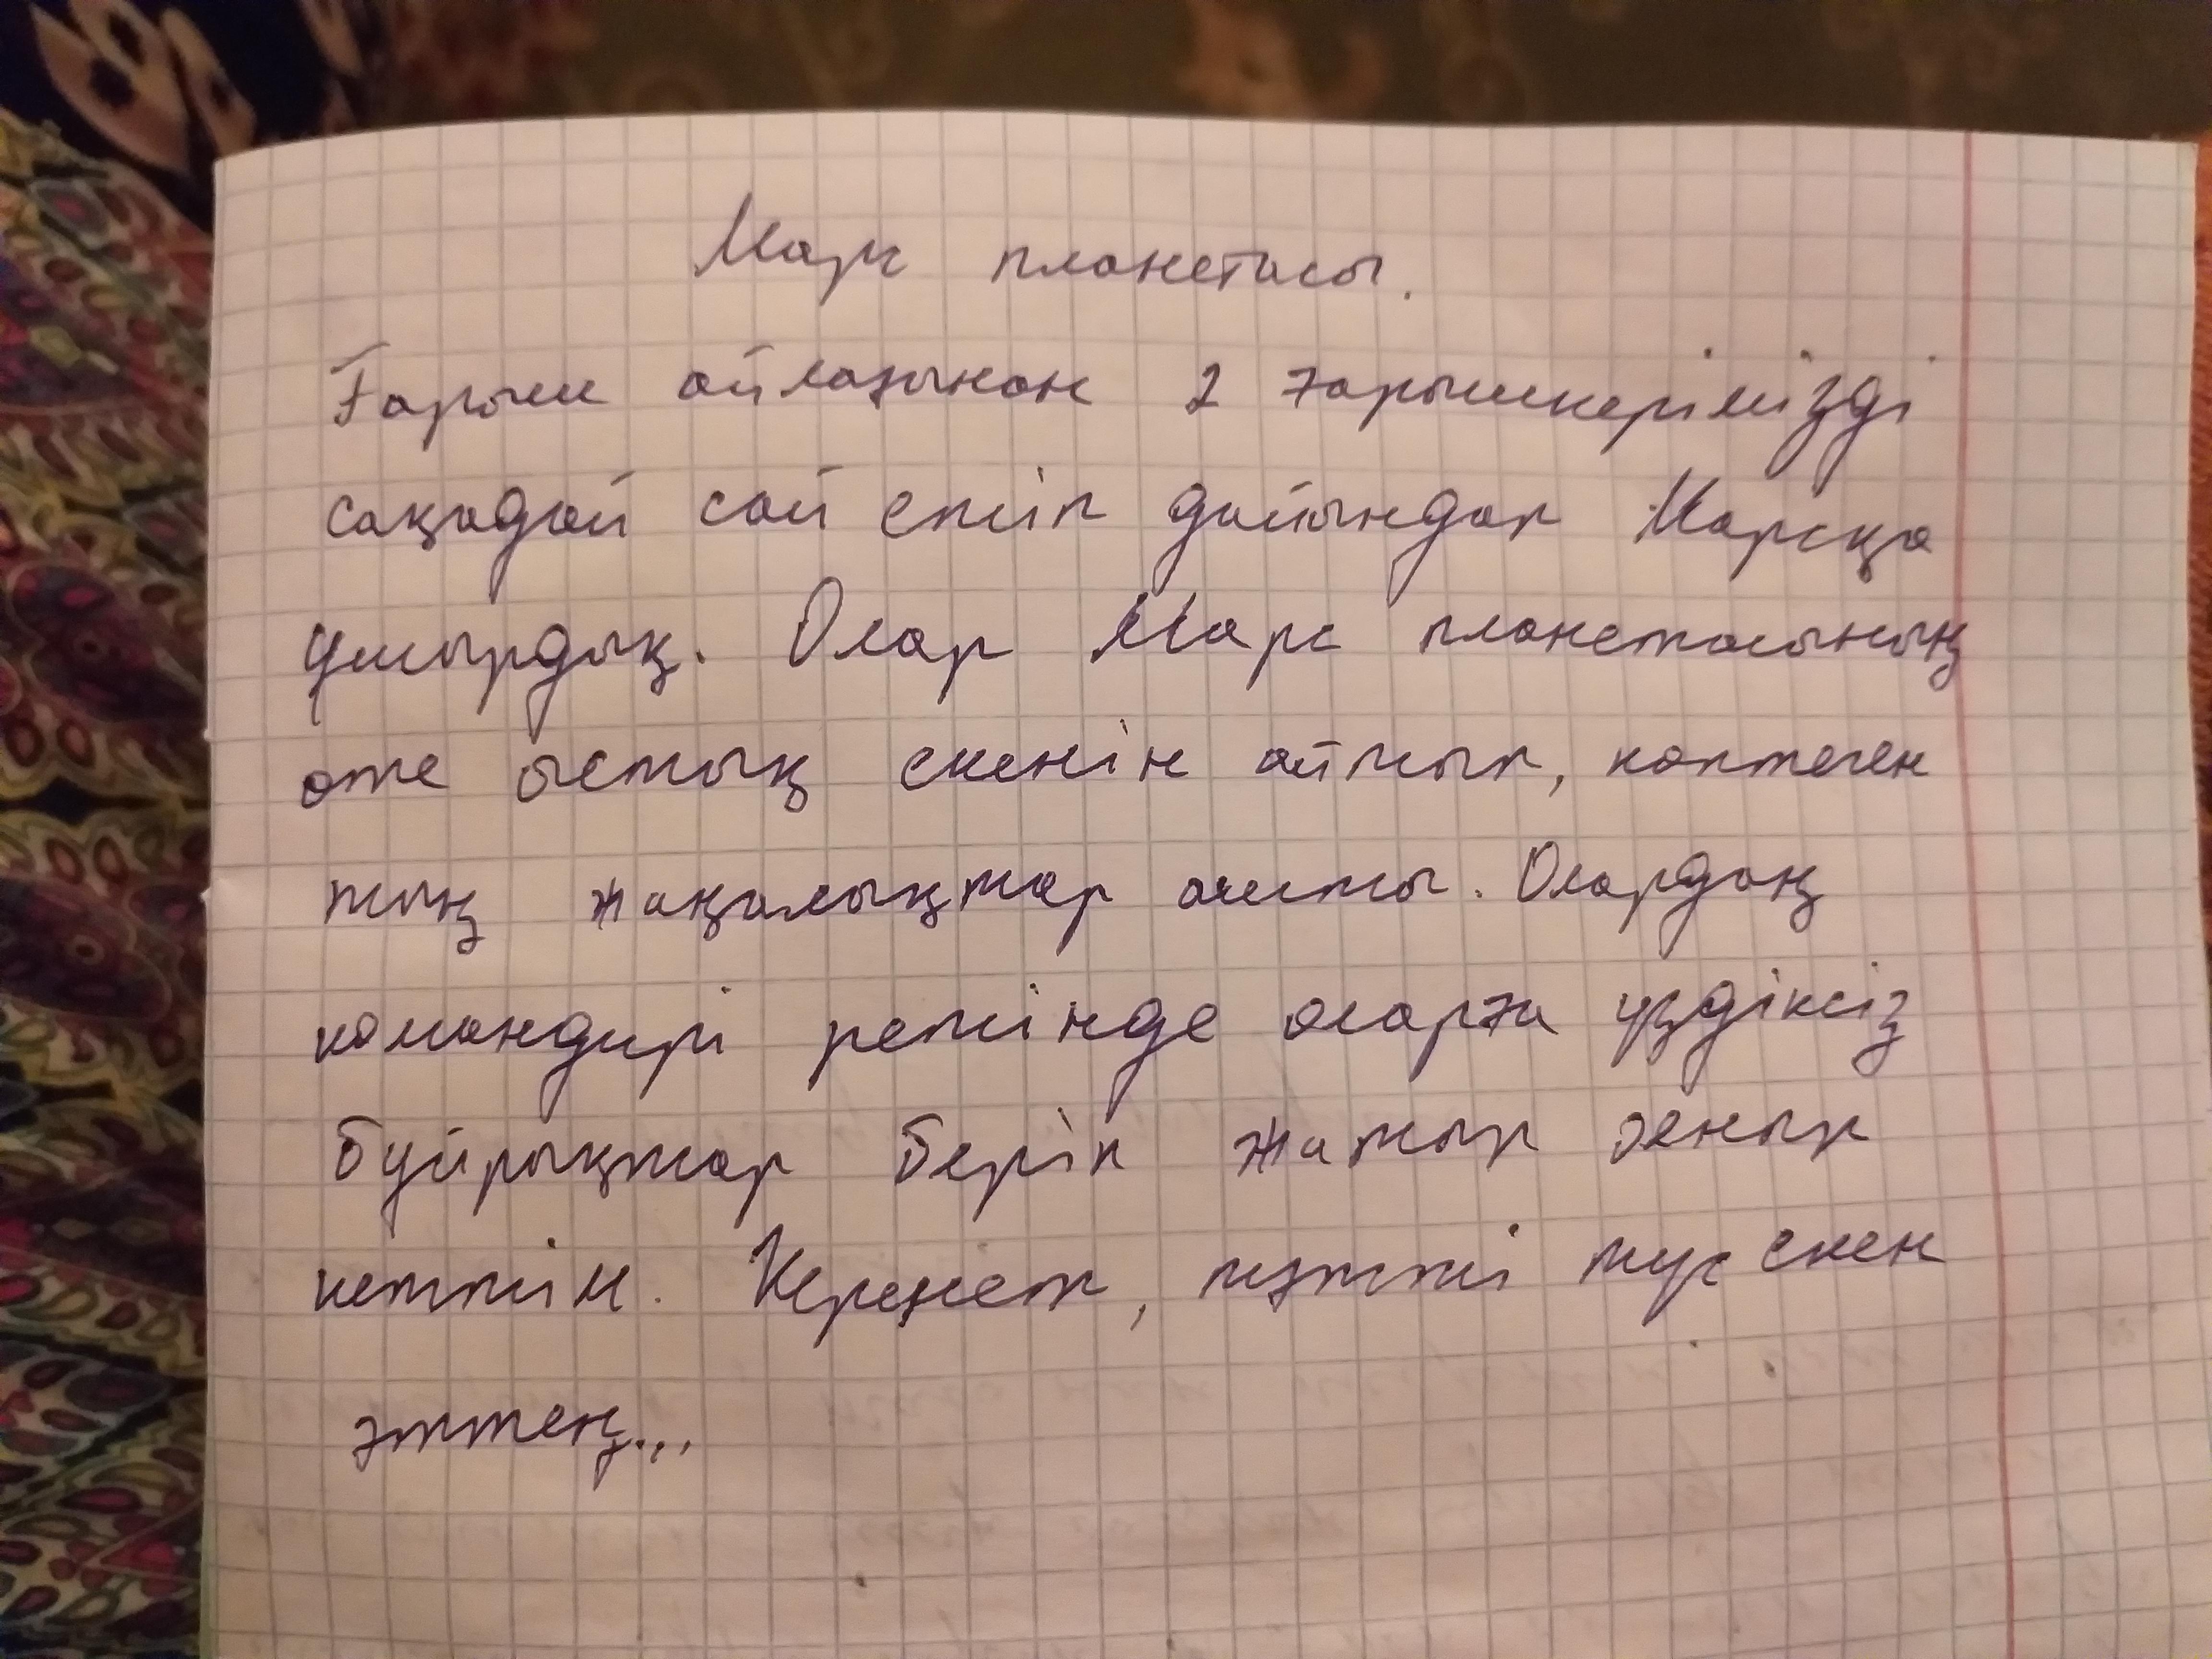 Марс планетасы.
Ғарыш айлағынан 2 ғарышкерімізді
сақадай сай етіп дайындап Марсқа
ұшырдық. Олар Марс планетасының
өте ыстық екенін айтып, көптеген
тың жаңалықтар ашты. Олардың
командирі ретінде оларға үздіксіз
бұйрықтар беріп жатып оянып
кеттім. Керемет, тәтті түс екен
әттең...